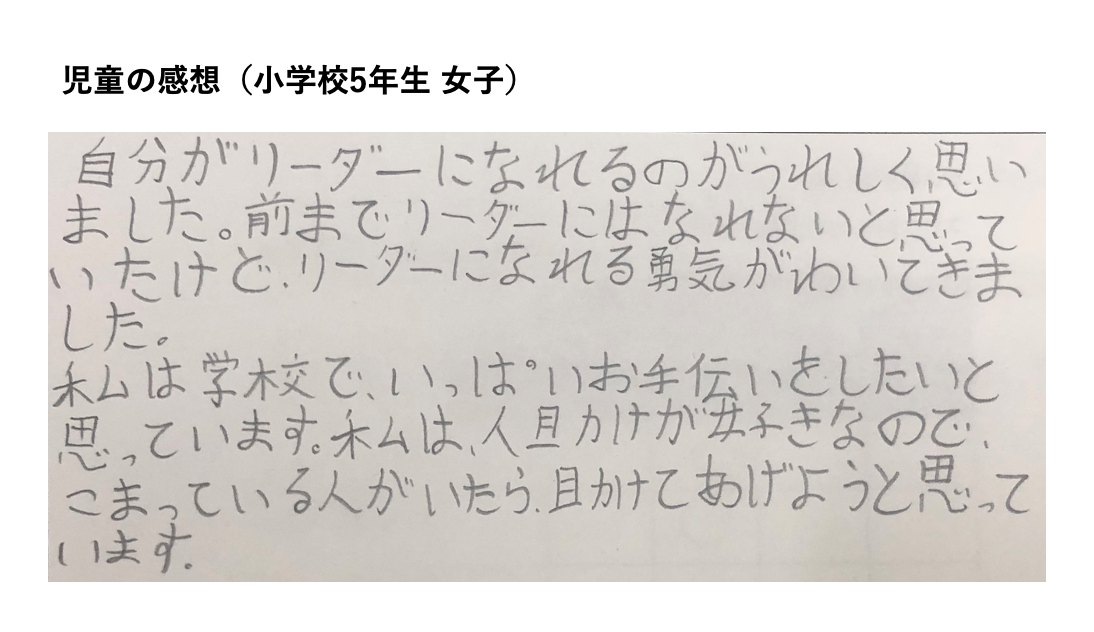 児童の感想（小学校5年生 女子）
自分がリーダーになれるのがうれしく思い
ました。前までリーダーにはなれないと思って
いたけど、リーダーになれる勇気がわいてきま
した。
私は学校で、いっぱいお手伝いをしたいと
思っています。私は、人助けが好きなので、
こまっている人がいたら、助けてあげようと思って
います。